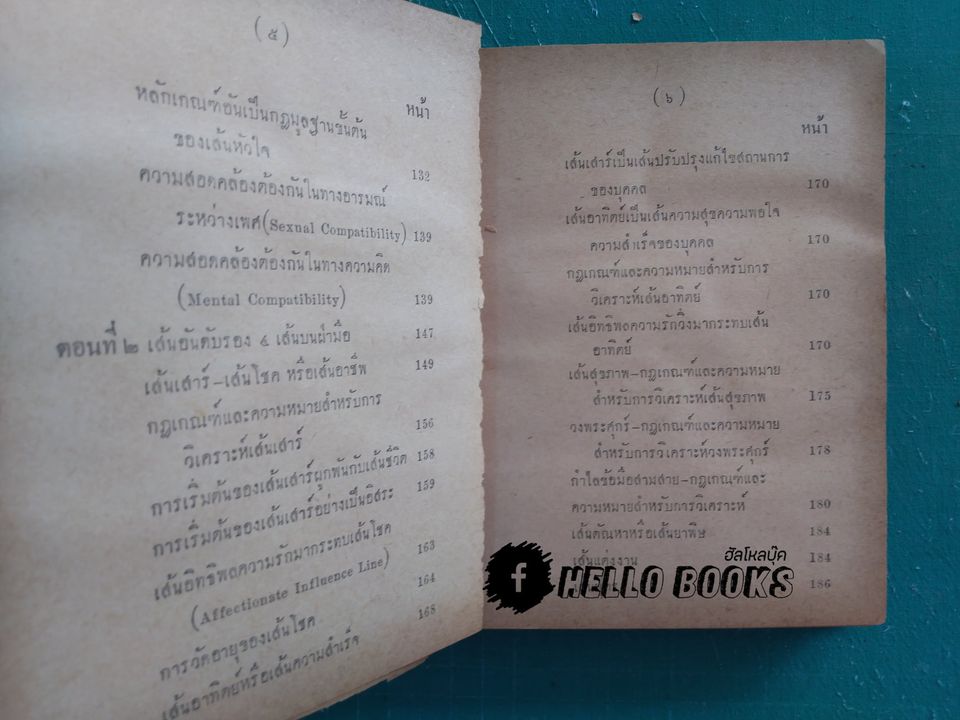 (๕)
หน้า
หลักเกณฑ์อันเป็นกฎมูลฐานขั้นต้น
ของเส้นหัวใจ 132
ความสอดคล้องต้องกันในทางอารมณ์
ระหว่างเพศ(Sexual Compatibility) 139
ความสอดคล้องต้องกันในทางความคิด
(Mental Compatibility) 139
ตอนที่ ๒ เส้นอันดับรอง ๔ เส้นบนฝ่ามือ 147
เส้นเสาร์-เส้นโชค หรือเส้นอาชีพ 149
กฎเกณฑ์และความหมายสำหรับการ
วิเคราะห์เส้นเสาร์ 156
การเริ่มต้นของเส้นเสาร์ผูกพันกับเส้นชีวิต 158
การเริ่มต้นของเส้นเสาร์อย่างเป็นอิสระ 159
เส้นอิทธิพลความรักมากระทบเส้นโชค
(Affectionate Influence Line) 163
การวัดอายุของเส้นโชค 164
เส้นอาทิตย์หรือเส้นความสำเร็จ 168
(๖)
หน้า
เส้นเสาร์เป็นเส้นปรับปรุงแก้ไขสถานการ
ของบุคคล 170
เส้นอาทิตย์เป็นเส้นความสุขความพอใจ
ความสำเร็จของบุคคล 170
กฎเกณฑ์และความหมายสำหรับการ
วิเคราะห์เส้นอาทิตย์ 170
เส้นอิทธิพลความรักวิ่งมากระทบเส้น
อาทิตย์ 170
เส้นสุขภาพ-กฎเกณฑ์และความหมาย
สำหรับการวิเคราะห์เส้นสุขภาพ 175
วงพระศุกร์-กฎเกณฑ์และความหมาย
สำหรับการวิเคราะห์วงพระศุกร์ 178
กำไลข้อมือสามสาย-กฎเกณฑ์และ
ความหมายสำหรับการวิเคราะห์ 180
เส้นตัณหาหรือเส้นยาพิษ 184
เส้นแต่งงาน 184
186
ฮัลโหลบุ๊ค
f HELLO BOOKS